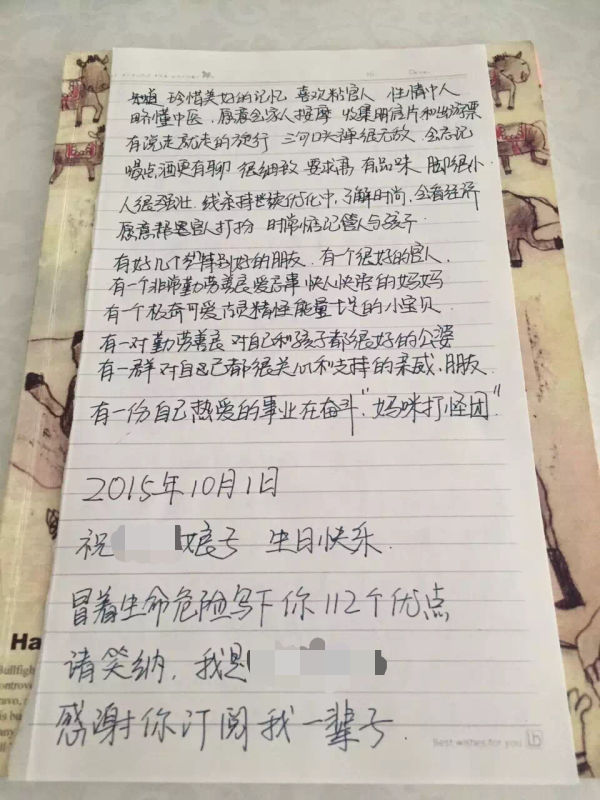 知道 珍惜美好的记忆 喜欢粘官人 性情中人
略懂中医、愿意全家人按摩 收集明信片和出游票
有说走就走的旅行 三句口头禅很无敌 全忘记
喝点酒更有聊 很细致 要求高 有品味 脚很小
人很强壮 线条持续优化中、了解时尚、全省经济
愿意帮官人打扮 时常惦记管人与孩子
有好几个特别好的朋友、有一个很好的官人、
有一个非常勤劳善良 快人快语的妈妈
有一个极奇可爱 古灵精怪 能量十足的小宝贝
有一对勤劳善良 对自己和孩子都很好的公婆
有一群对自己都很关心和支持的亲戚、朋友
有一份自己热爱的事业在奋斗，"妈咪打怪团"
2015年10月1日
祝 娘子 生日快乐
冒着生命危险写下你112个优点
请笑纳，我是
感谢你订阅我一辈子
Best wishes for you
Ha
Bullfigh